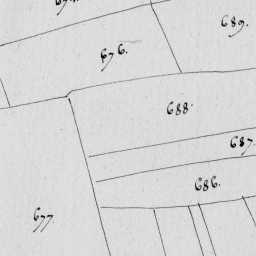 689.
676.
688.
687.
686.
677